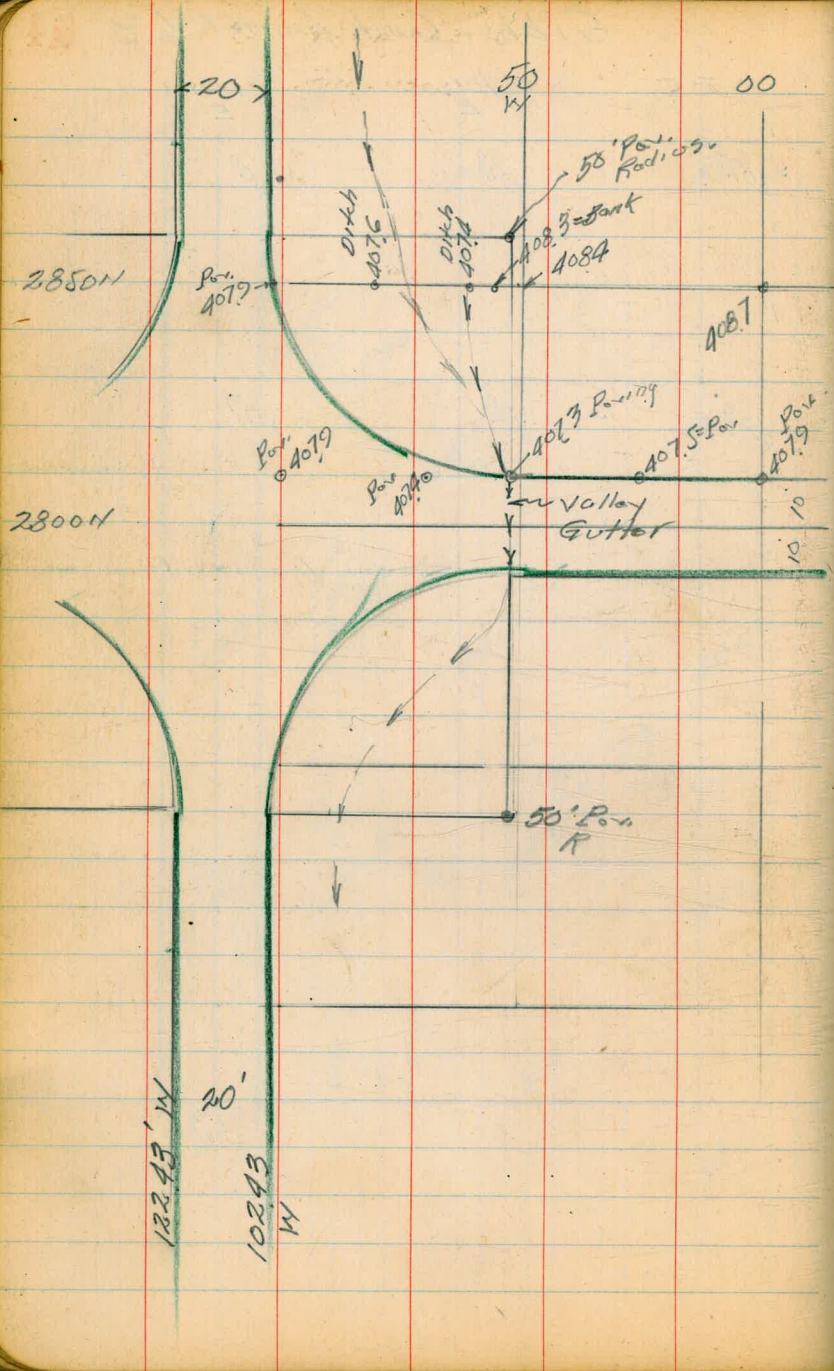 20
50
W
00
50' Pav.
Radius.
Ditch
4076
Ditch
4074
408.3=Bank
4084
2850N
Pav.
4079
4087
4073 Paving
407.5=Pav
Pav.
4079
Pav.
4079
Pav
4074
2800N
Valley
Gutter
10
10
50' Pav.
R
20'
12243' W
10243
W